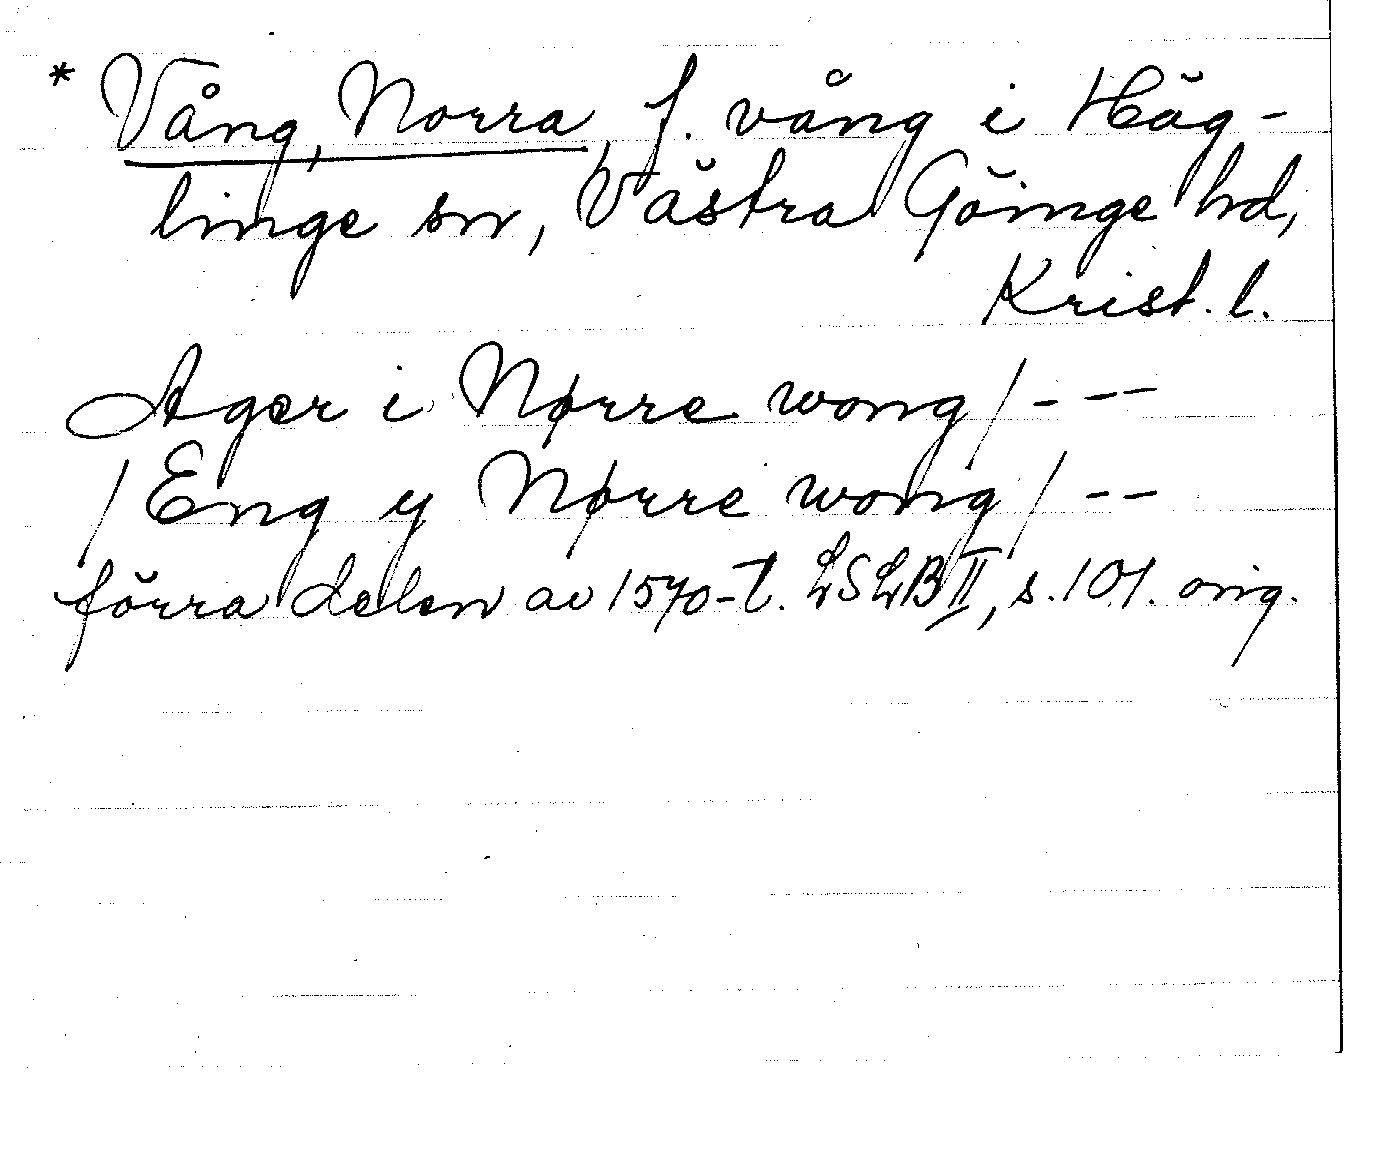 * Vång, Norra, f. vång i Häg-
linge sn, Västra Göinge hd,
Krist. l.
Ager i Nørre wong / - - -
/ Eng y Nørre wong / - -
förra delen av 1570-t. LSLB II, s. 101. orig.